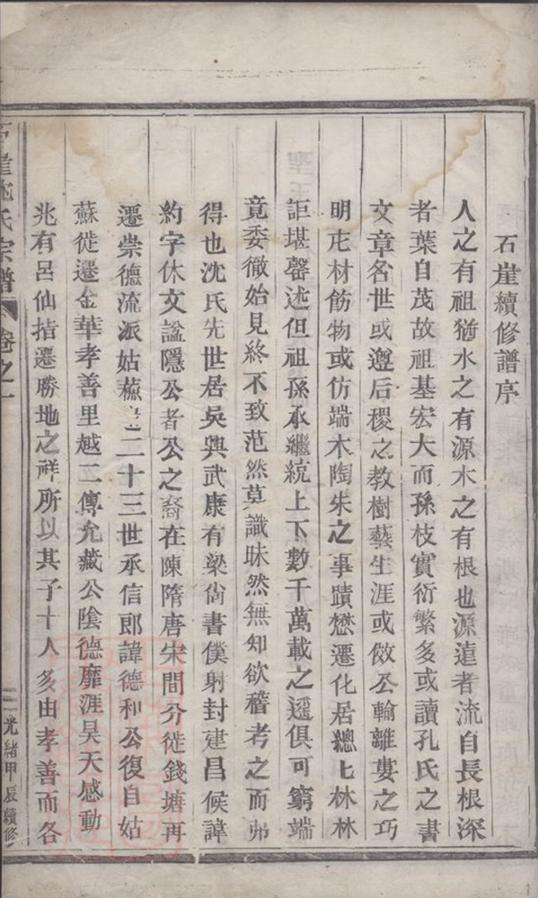 石崖續修譜序
人之有祖猶水之有源木之有根也源遠者流自長根深
者葉自茂故祖基宏大而孫枝實衍繁多或讀孔氏之書
文章名世或遵后稷之教樹藝生涯或倣公輸離婁之巧
明庀材飭物或仿端木陶朱之事蹟懋遷化居總七林林
詎堪罄述但祖孫承繼統上下數千萬載之遥俱可窮端
竟委徹始見終不致茫然莫識昧然無知欲稽考之而弗
得也沈氏先世居吳興武康有梁尚書僕射封建昌侯諱
約字休文諡隱公者公之裔在陳隋唐宋間分徙錢塘再
遷崇德流派姑蘇二十三世承信郎諱德和公復自姑
蘇徙遷金華孝善里越二傳允藏公陰德靡涯昊天感動
兆有呂仙指遷勝地之祥所以其子十人多由孝善而各
石崖沈氏宗譜 卷之一 光緒甲辰續修